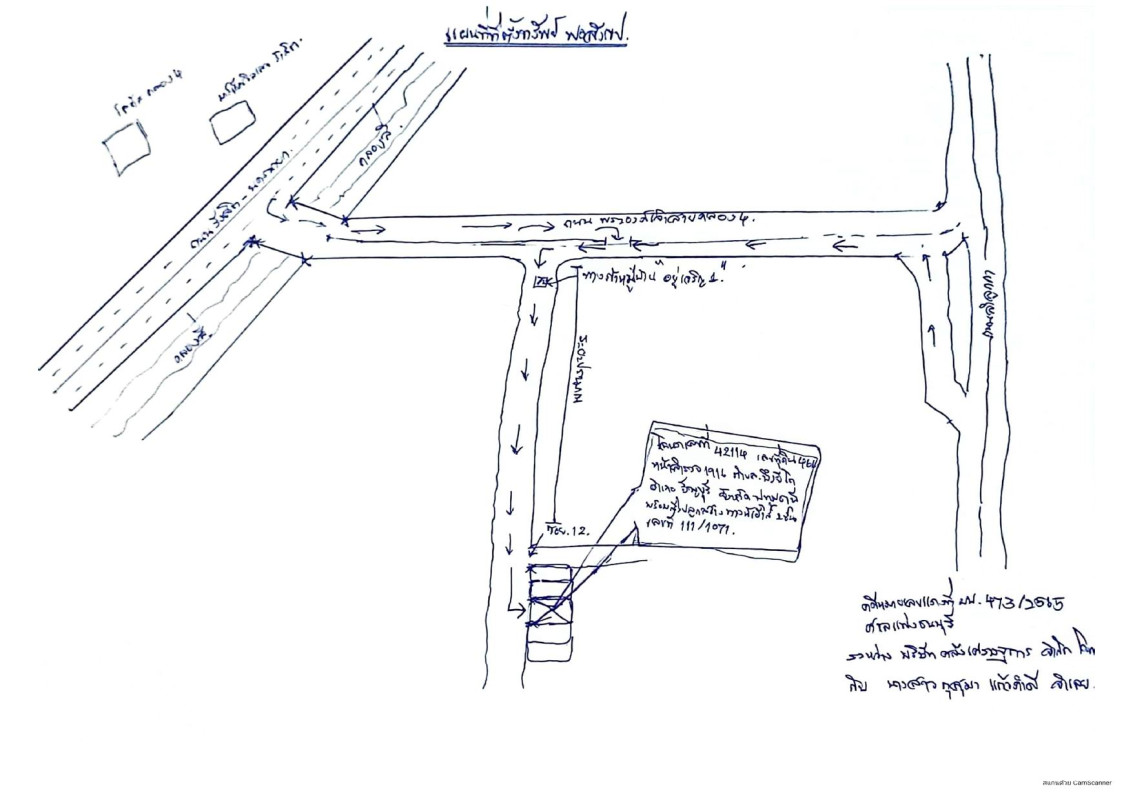 แผนที่ที่ตั้งทรัพย์ พอสังเขป.
โลตัส คลอง 4
ถนนรังสิต - นครนายก
คลองรังสิต
คลองรังสิต
ถนน พระองค์เจ้าสาย คลอง 4.
ทางเข้าหมู่บ้าน "อยู่เจริญ 1".
ระยะประมาณ
ซอย.12.
โฉนดเลขที่ 42114 เลขที่ดิน
หน้าสำรวจ 1916 ตำบล.บึงยี่โถ
อำเภอ ธัญบุรี จังหวัด ปทุมธานี
พร้อมสิ่งปลูกสร้าง ทาวน์เฮ้าส์ 2 ชั้น
เลขที่ 111/1071.
คดีหมายเลขแดงที่ 473/2565
ศาลแพ่งธนบุรี
ระหว่าง บริษัท คลังเศรษฐการ จำกัด โจทก์
กับ นางสาว กุสุมา แก้วคำมี จำเลย.
สแกนด้วย CamScanner